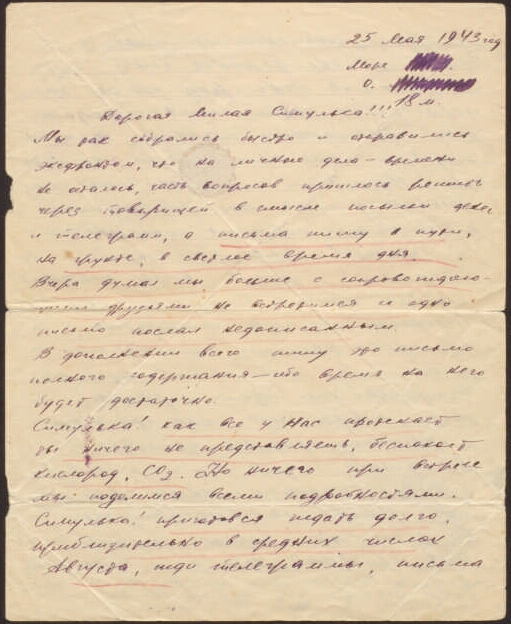 25 Мая 1943 год
Море
о.
Дорогая милая Симулька!!! 18 м.
Мы так собрались быстро и отправились
экспромтом, что на личные дела - времени
не осталось, часть вопросов пришлось решить
через товарищей в смысле посылки денег
и телеграмм, а письма пишу в пути,
на грунте, в светлое время дня.
Вчера думал мы больше с сопровождаю-
щими друзьями не встретимся и одно
письмо послал недописанным.
В дополнении всего пишу это письмо
полного содержания - ибо время на него
будет достаточно.
Симулька! как все у нас протекает
ты ничего не представляешь, беспокоит
кислород, CO2. Но ничего при встрече
мы поделимся всеми подробностями.
Симулька! приготовься ждать долго,
приблизительно в средних числах
Августа, жди телеграммы, письма